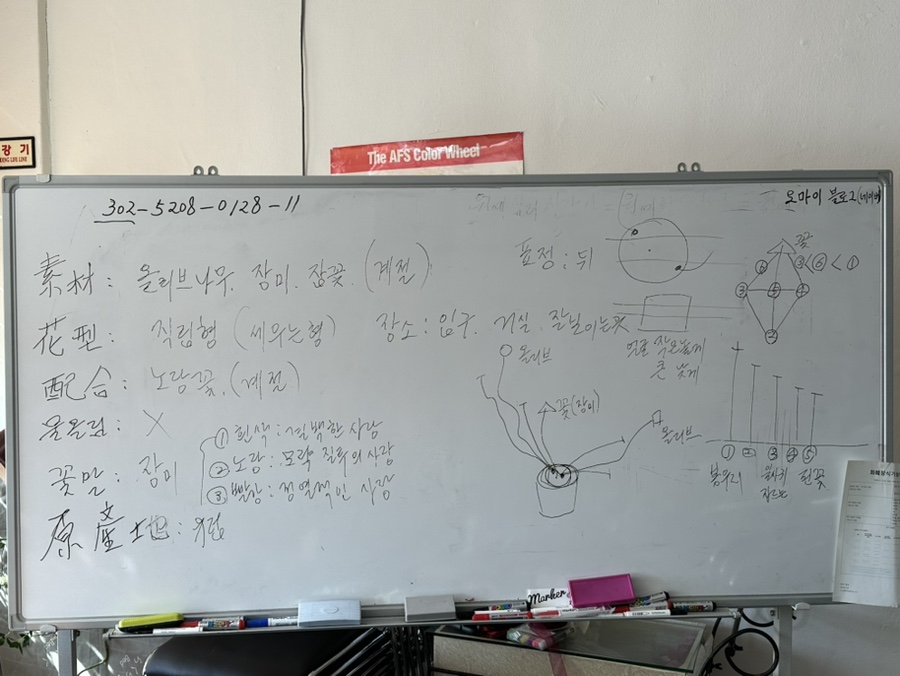 강 기
The AFS Color Wheel
302-5208-0128-11
도마이 블로그(네이버)
素材: 올리브나무, 장미, 잡꽃, (계절)
표정: 뒤
꽃
③<⑥<①
⑥
③ ⑤ ④
②
花型: 직립형 (세우는형) 장소: 입구, 거실, 잘보이는곳
얼굴 작은높게
큰 낮게
配合: 노랑꽃, (계절)
올리브
꽃(장미)
올리브
X
꽃말: 장미
① 흰색: 결백한 사랑
② 노랑: 질투의 사랑
③ 빨강: 정열적인 사랑
① ② ③ ④ ⑤
봉우리
핀꽃
原産地:
Marker